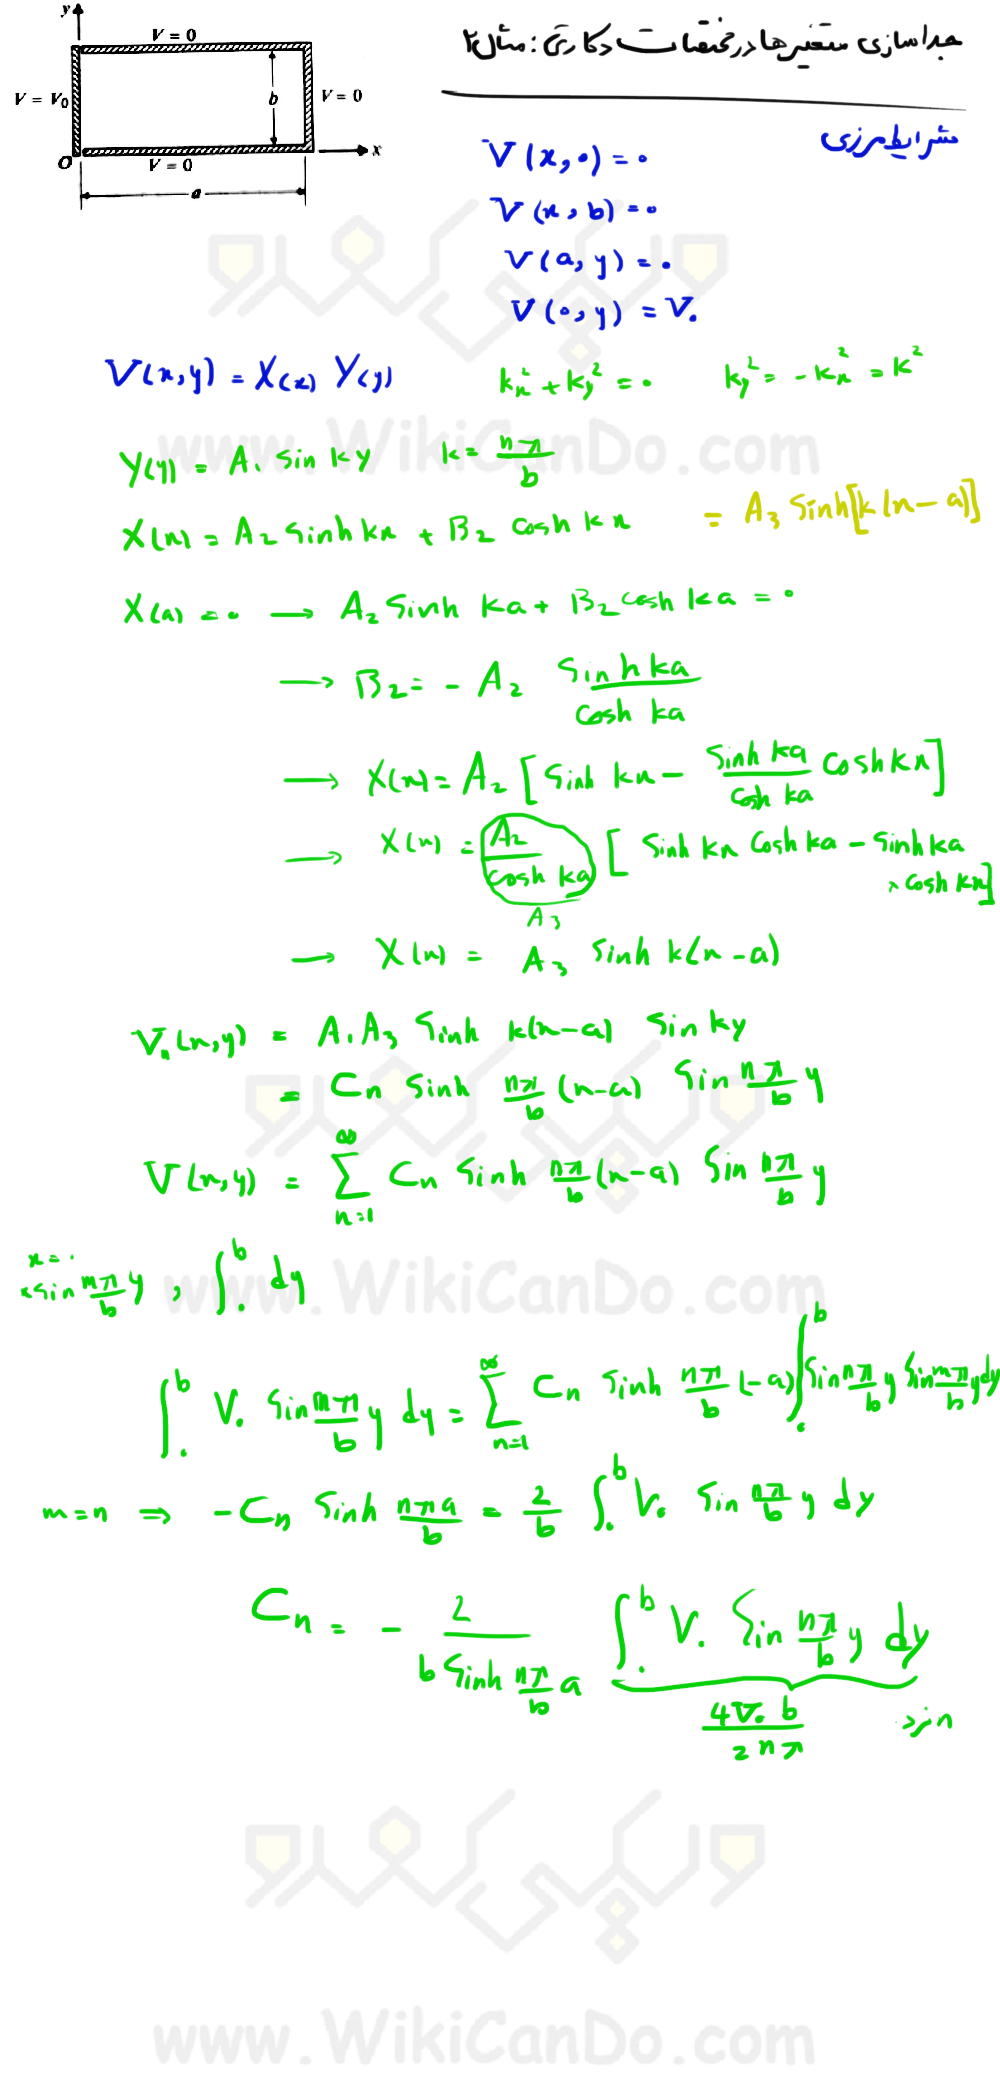 جداسازی متغیرها در مختصات دکارتی : مثال ۲
y
V = 0
V = V₀
b
V = 0
O
V = 0
x
a
شرایط مرزی
V(x,0) = 0
V(x,b) = 0
V(a,y) = 0
V(0,y) = V₀
V(x,y) = X(x) Y(y)
kx² + ky² = 0
ky² = -kx² = k²
Y(y) = A₁ sin ky
k = nπ/b
X(x) = A₂ sinh kx + B₂ cosh kx = A₃ sinh[k(x-a)]
X(a) = 0 → A₂ sinh ka + B₂ cosh ka = 0
→ B₂ = - A₂ sinh ka / cosh ka
→ X(x) = A₂ [sinh kx - sinh ka / cosh ka cosh kx]
→ X(x) = A₂ / cosh ka [sinh kx cosh ka - sinh ka
× cosh kx]
A₃
→ X(x) = A₃ sinh k(x-a)
Vₙ(x,y) = A₁A₃ sinh k(x-a) sin ky
= Cn sinh nπ/b (x-a) sin nπ/b y
V(x,y) = ∑_{n=1}^{∞} Cn sinh nπ/b (x-a) sin nπ/b y
x = 0
× sin mπ/b y , ∫₀^b dy
∫₀^b V₀ sin mπ/b y dy = ∑_{n=1}^{∞} Cn sinh nπ/b (-a) ∫₀^b sin nπ/b y sin mπ/b y dy
m = n ⇒ -Cn sinh nπa/b = 2/b ∫₀^b V₀ sin nπ/b y dy
Cn = - 2 / b sinh nπ/b a ∫₀^b V₀ sin nπ/b y dy
4V₀ b / 2nπ
n فرد
www.WikiCanDo.com
www.WikiCanDo.com
www.WikiCanDo.com